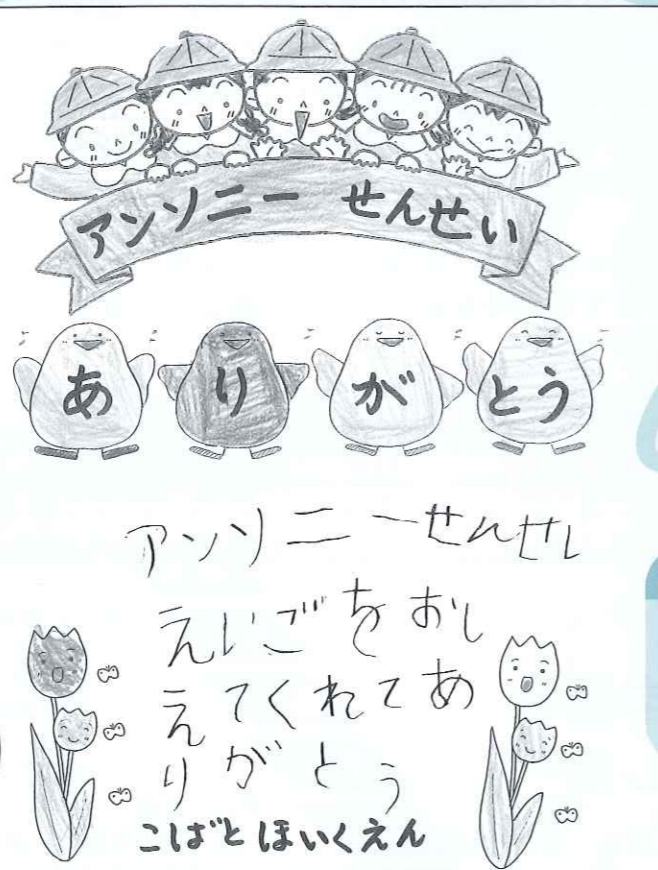 アンソニー せんせい
ありがとう
アンソニーせんせい
えいごをおし
えてくれてあ
りがとう
こばとほいくえん